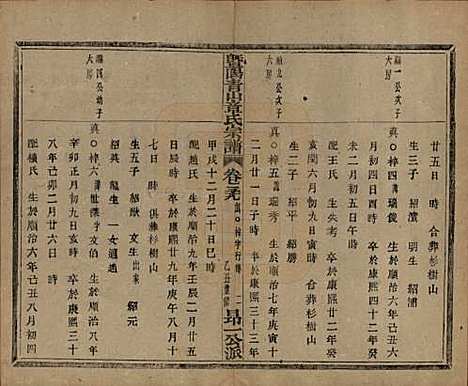 福一公次子
大房
廿五日　時　合葬杉樹山
生三子　紹濱　明生　紹浦
真　梓四　瑞儀　生於順治六年己丑六
月初四日酉時　卒於康熙四十二年癸
未二月初五日午時
配王氏　生失考　卒於康熙廿二年癸
亥閏六月初九日寅時　合葬杉樹山
生二子　紹平　紹勝
真　梓五　生於順治七年庚寅十
二月廿一日子時　卒於康熙三十三年
大房
暨陽青山章氏宗譜　卷三
梓字行傳
昂一公派
甲戌十二月二十日巳時
配趙氏　生於順治九年壬辰二月廿五
日辰時　卒於康熙廿九年庚午八月
七日時　俱葬杉樹山
生五子　紹獻　文生　紹元
紹英　龍生　一女適過
福四公幼子
大房
真　梓六　世漢　字文伯　生於順治八年
辛卯正月初一　時　卒於康熙三十
八年己卯二月廿六日　時
配楊氏　生於順治六年己丑八月初四